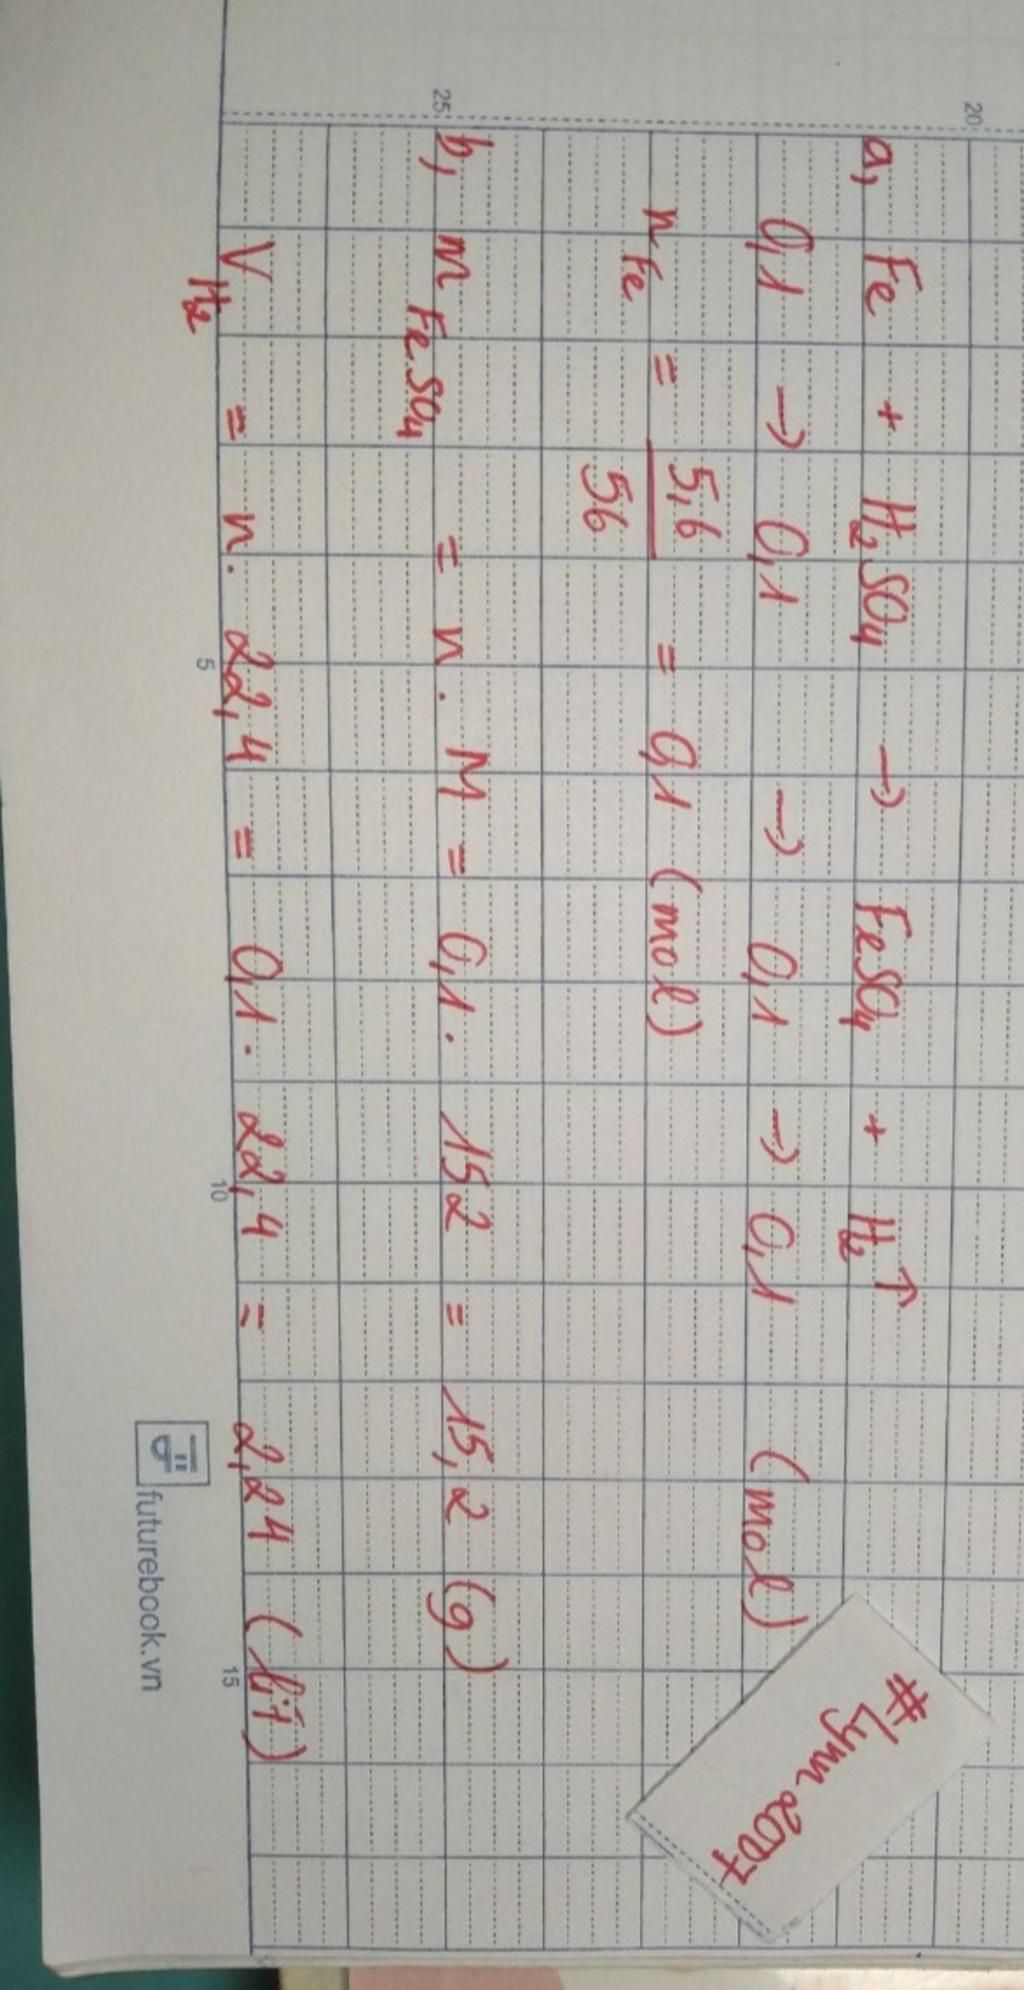 20
a, Fe + H2SO4 → FeSO4 + H2↑
0,1 → 0,1 → 0,1 → 0,1 (mol)
nFe = 5,6 / 56 = 0,1 (mol)
25
b, mFeSO4 = n . M = 0,1. 152 = 15,2 (g)
VH2 = n. 22,4 = 0,1. 22,4 = 2,24 (lít)
5 10 15
futurebook.vn
#Lym2007